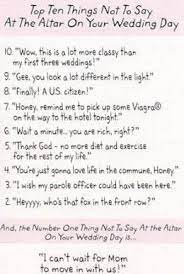 Top Ten Things Not To Say
At The Altar On Your Wedding Day
10. "Wow, this is a lot more classy than
my first three weddings!"
9. "Gee, you look a lot different in the light."
8. "Finally! A U.S. citizen!"
7. "Honey, remind me to pick up some Viagra®
on the way to the hotel tonight."
6. "Wait a minute.. you are rich, right?"
5. "Thank God - no more diet and exercise
for the rest of my life."
4. "You're just gonna love life in the commune, Honey."
3. "I wish my parole officer could have been here."
2. "Heyyyy, who's that fox in the front row?"
And, the Number One Thing Not To Say At the Altar
On Your Wedding Day is...
"I can't wait for Mom
to move in with us!"